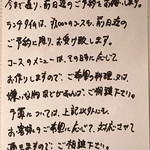 今まで通り、前日迄のご予約をお願いします。
ランチタイムは、3,000のコースも、前日迄の
ご予約に限り、お受け致します。
コース、メニューは、その日に応じて
お作りしますので、ご希望の料理、又は、
嫌いな物などがあれば、ご相談下さい。
予算については、上記以外にも、
お客様のご希望に応じて、対応させて
頂きますので、ご相談下さい。